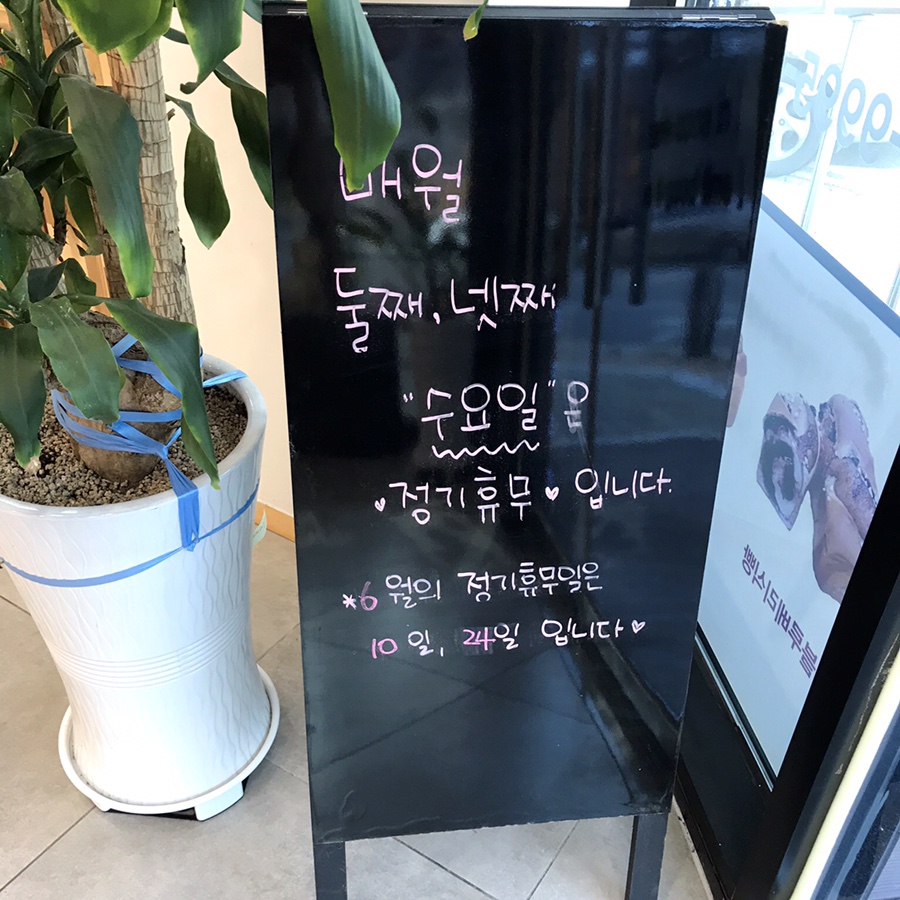 매월
둘째, 넷째
"수요일"은
♥정기휴무♥ 입니다.
*6월의 정기휴무일은
10일, 24일 입니다♥
블루베리식빵